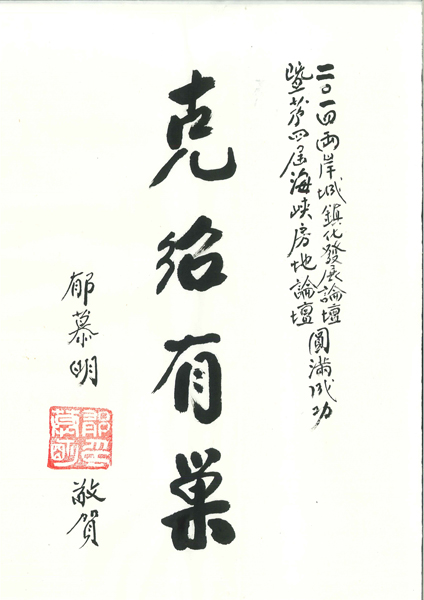 二〇一四兩岸城鎮化發展論壇
暨第四屆海峽房地論壇 圓滿成功
克紹有巢
郁慕明
郁慕明
敬賀